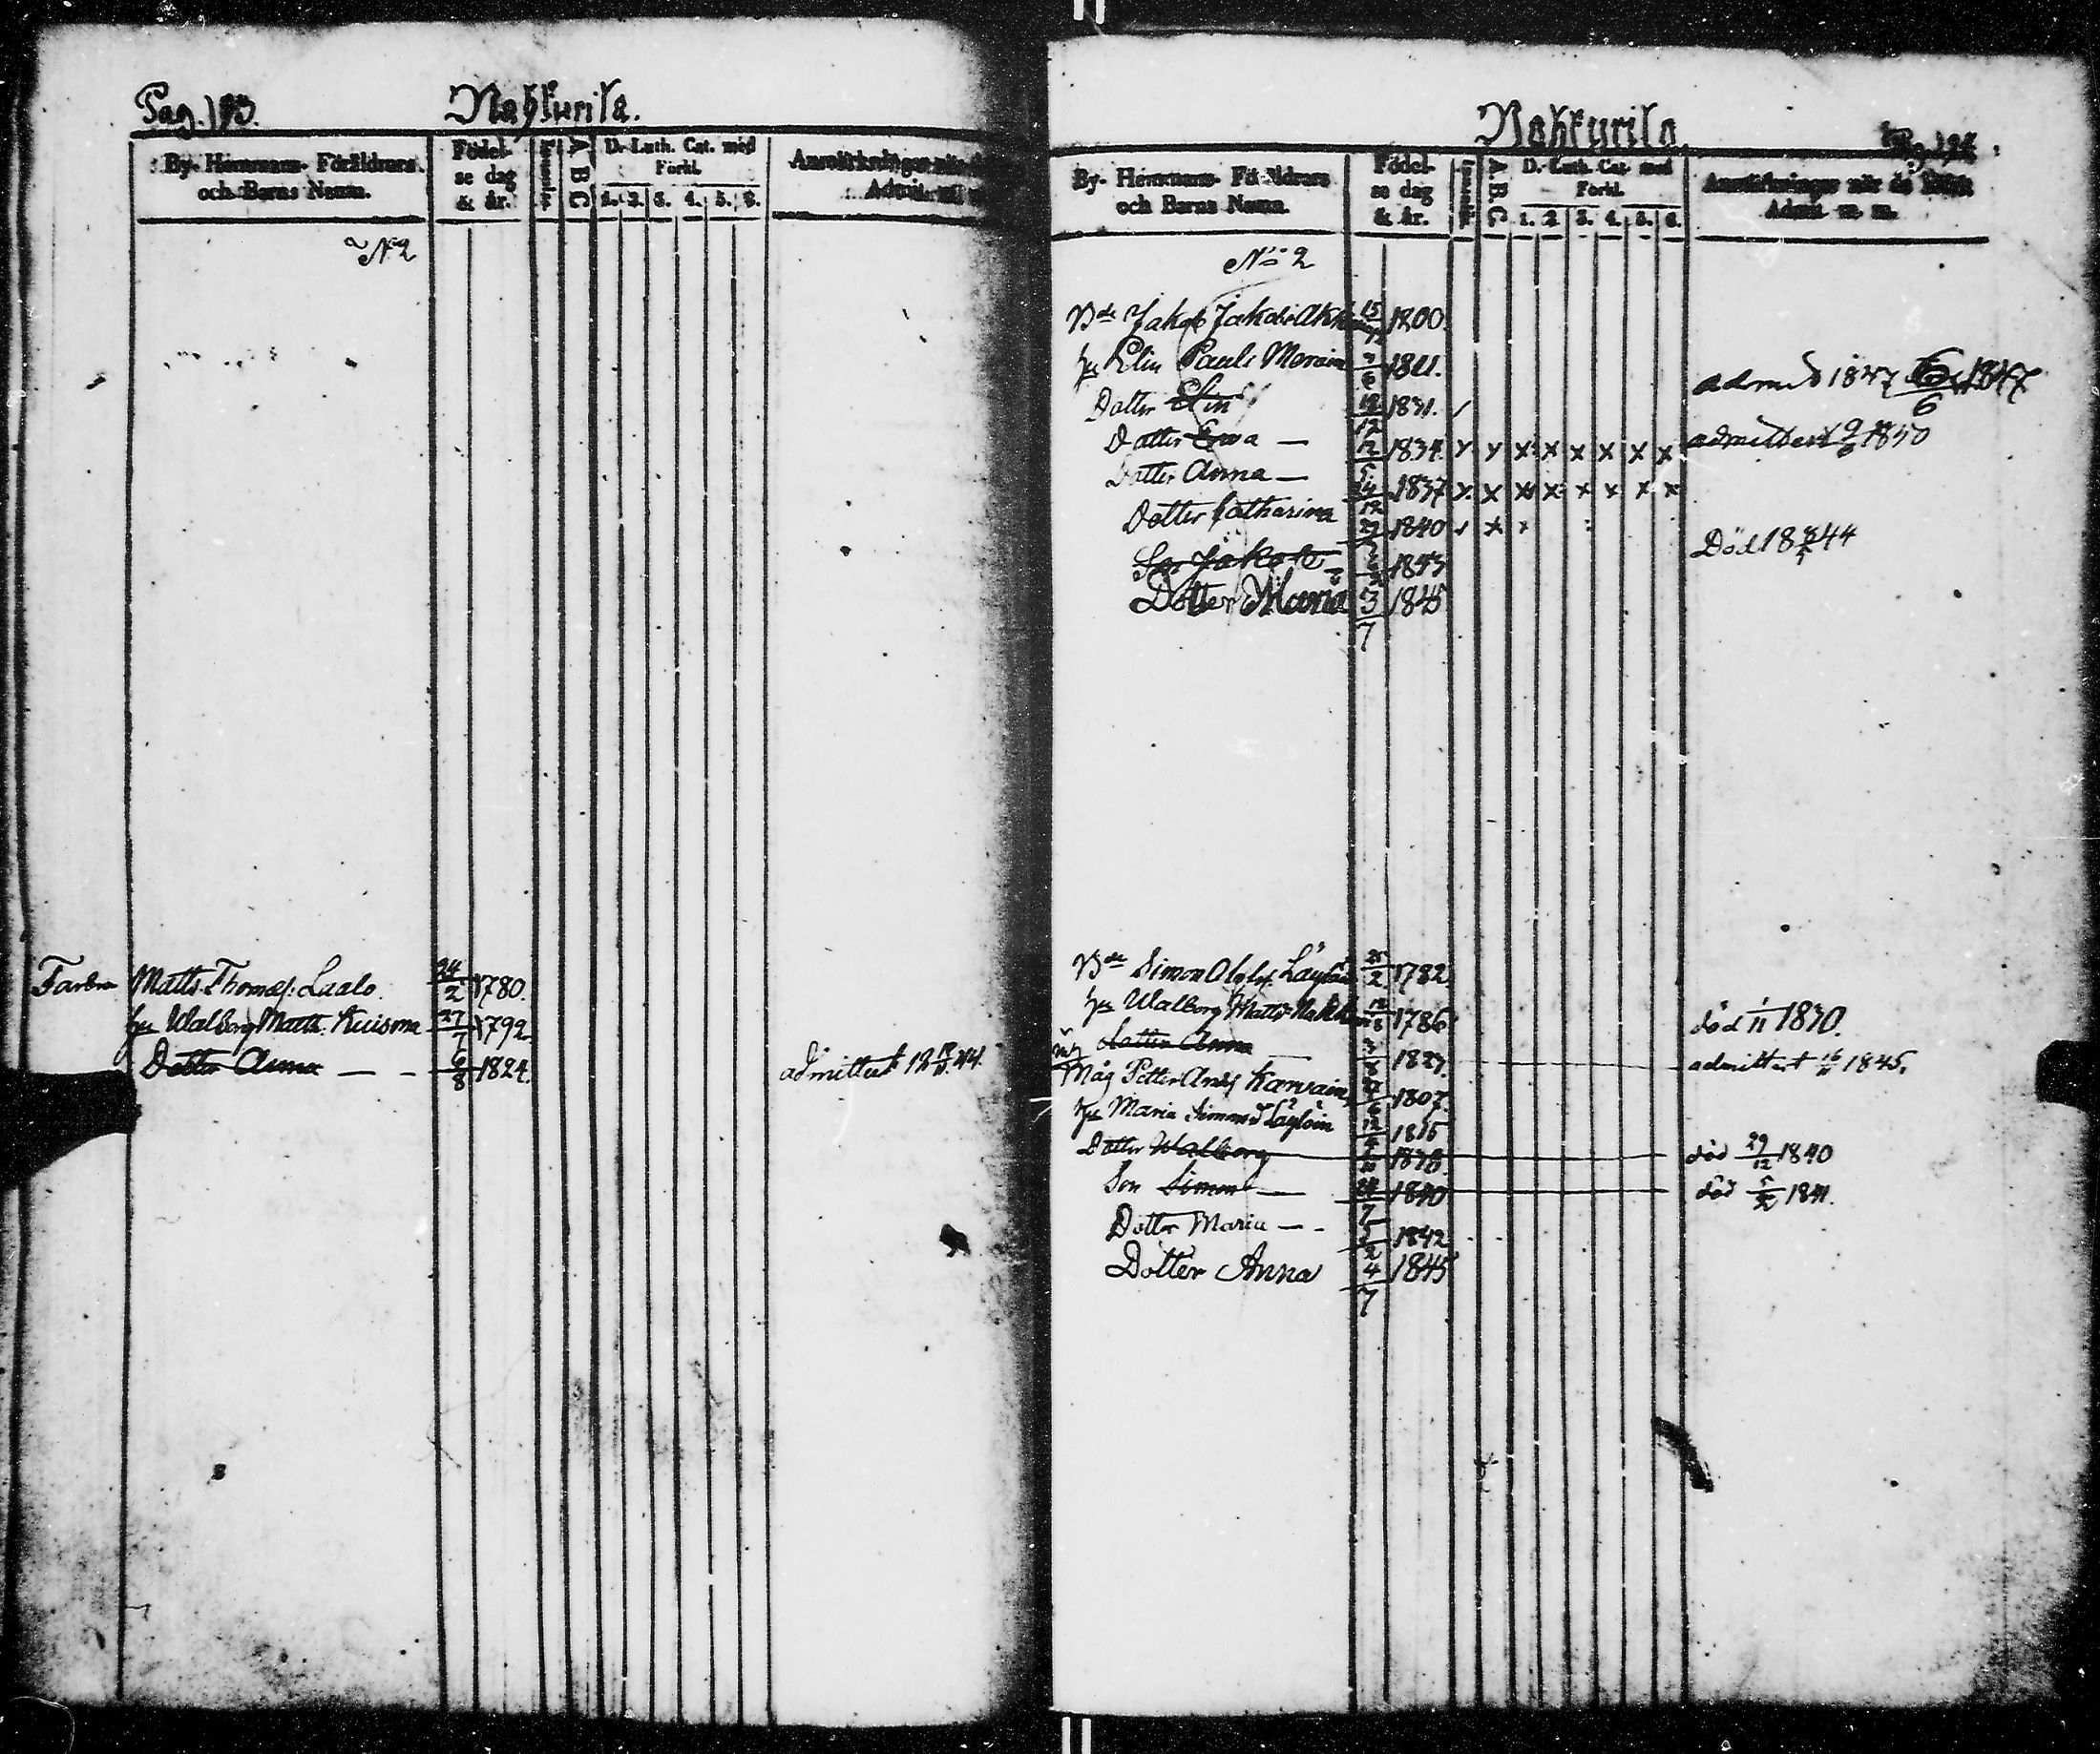 Pag. 193. Nahkurila.
By- Hemmans- Föräldrars och Barns Namn. Födelse dag & år. A B C D. Luth. Cat. med Förkl. 1. 2. 3. 4. 5. 6. Anmärkningar
N:o 2
Farbr Matts Thomæs. Laalo. 24/2 1780.
hu Walborg Matts. Kuisma 27/7 1792
Dotter Anna — - 6/8 1824. admitterat 18 44.
Nahkurila
By- Hemmans- Föräldrars och Barns Namn. Födelse dag & år. A B C D. Luth. Cat. med Förkl. 1. 2. 3. 4. 5. 6. Anmärkningar när de Admit. m. m.
N:o 2
Bde Jakob Jakobs 15 1800.
hu Elin Pauls 1811.
Dotter Elin 1831. admit 1847 6 1847
Dotter Ewa — 12 1834. x x x x x x x x admitterat 1850
Dotter Anna — 1837 x x x x x x x x
Dotter Catharina 1840 x
Son Jakob 1843 Död 18 44
Dotter Maria 3/7 1845
Bde Simon 2 1782
hu Walborg Matts 1786 död 1/11 1830.
dotter Anna 1827. admitterat 1845.
Måg Petter Ands Karvain 1807.
hu Maria Simonsd 12/4 1815
Dotter Walborg 1838. död 29/12 1840
Son Simon — 7 1840 död 5/2 1841.
Dotter Maria — - 5/2 1842
Dotter Anna 4/7 1845